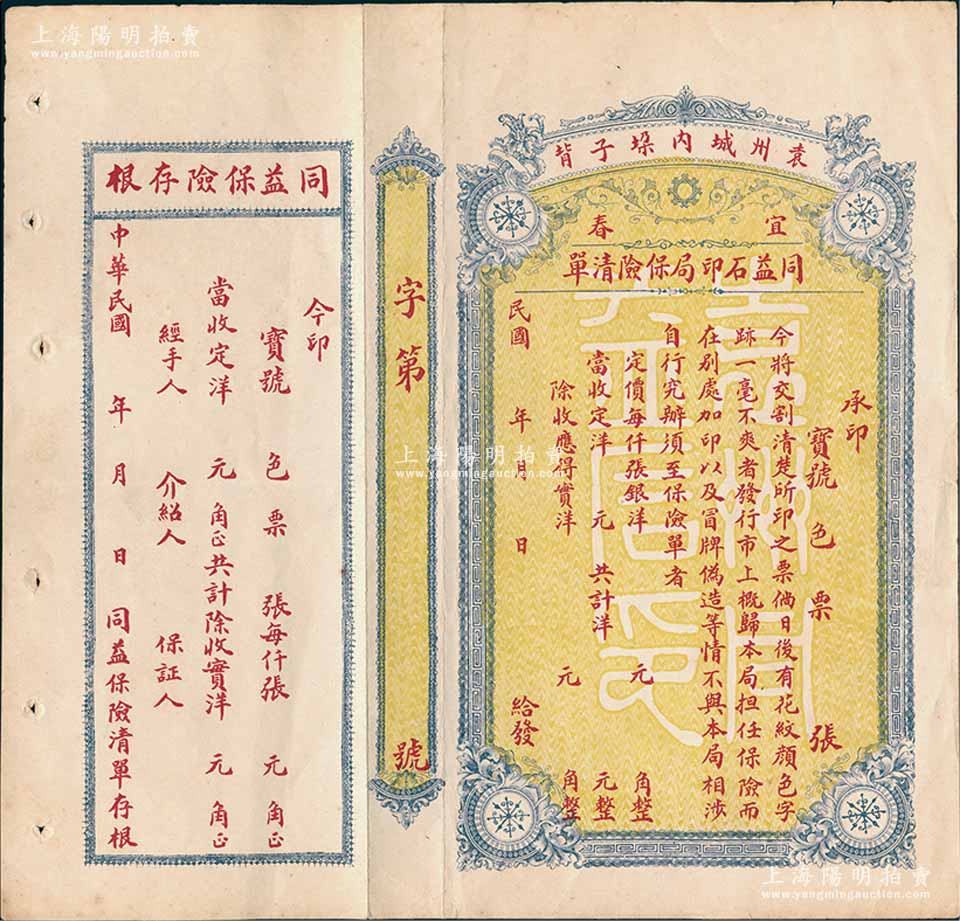 上海陽明拍賣
www.yangmingauction.com
袁州城内垛子背
宜春
同益石印局保險清單
承印
寶號 色 票 張
今將交割清楚所印之票倘日後有花紋顏色字
跡一毫不爽者發行市上概歸本局担任保險而
在别處加印以及冒牌偽造等情不與本局相涉
自行究辦須至保險單者
定價每仟張銀洋 元 角整
當收定洋 元 共計洋 元整
除收應得實洋 元 角整
民國 年 月 日 給發
字第 號
同益保險存根
今印
寶號 色 票 張每仟張 元 角正
當收定洋 元 角正共計除收實洋 元 角正
經手人 介紹人 保証人
中華民國 年 月 日 同益保險清單存根
上海陽明拍賣
www.yangmingauction.com
上海陽明拍賣
www.yangmingauction.com